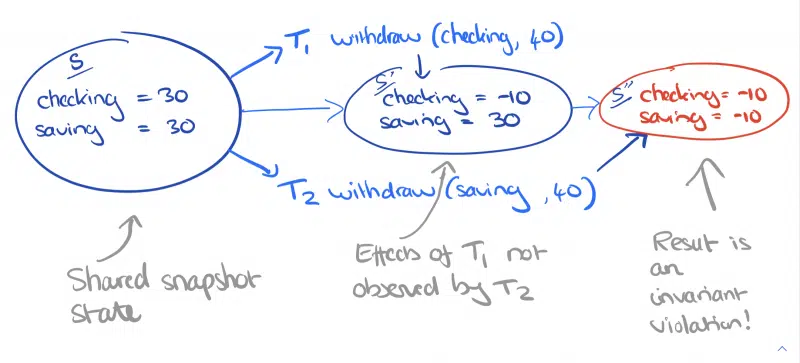 S
checking = 30
saving = 30
T1 withdraw (checking, 40)
S'
checking = -10
saving = 30
T2 withdraw (saving, 40)
S" checking = -10
saving = -10
Shared snapshot
state
Effects of T1 not
observed by T2
Result is
an
invariant
violation!